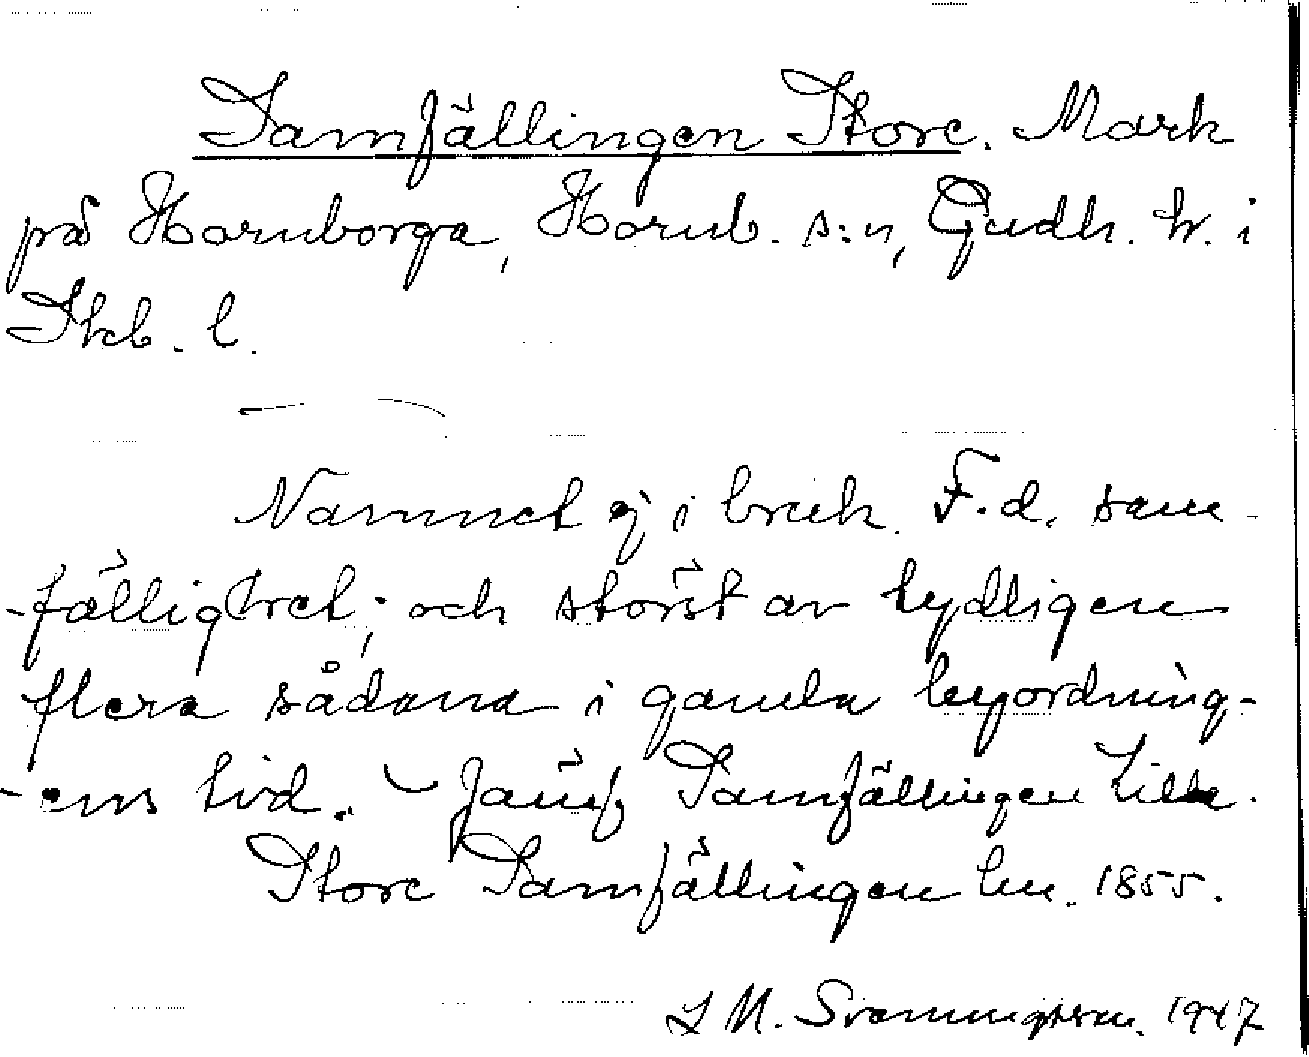 Samfällingen Store. Mark
på Hornborga, Hornb. s:n, Gudh. hr. i
Skb. l.
Namnet ej i bruk. F.d. sam-
-fällighet; och störst av tydligen
flera sådana i gamla byordning-
-ens tid. – Jämf. Samfällingen Lilla.
Store Samfällingen lm. 1855.
L M. Svenungsson. 1947